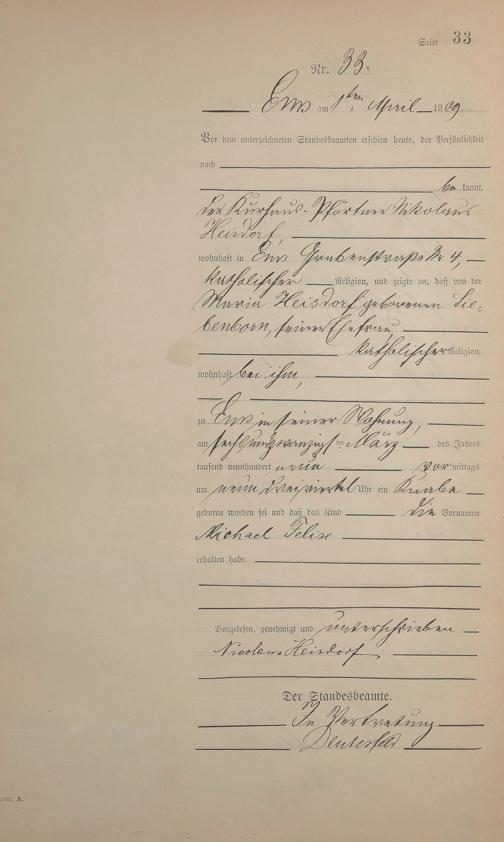 Seite 33
Nr. 33.
Ems am 1ten April 1909.
Vor dem unterzeichneten Standesbeamten erschien heute, der Persönlichkeit
nach
be kannt,
der Kurhaus-Pförtner Nikolaus
Heisdorf,
wohnhaft in Ems Grabenstraße Nr 4,
katholischer Religion, und zeigte an, daß von der
Maria Heisdorf geborenen Lie-
benborn, seiner Ehefrau,
katholischer Religion,
wohnhaft bei ihm,
zu Ems in seiner Wohnung,
am sechsundzwanzigsten März des Jahres
tausend neunhundert neun vor mittags
um neun dreiviertel Uhr ein Knabe
geboren worden sei und daß das Kind die Vornamen
Michael Felix
erhalten habe.
Vorgelesen, genehmigt und unterschrieben
Nicolaus Heisdorf
Der Standesbeamte.
In Vertretung
A.